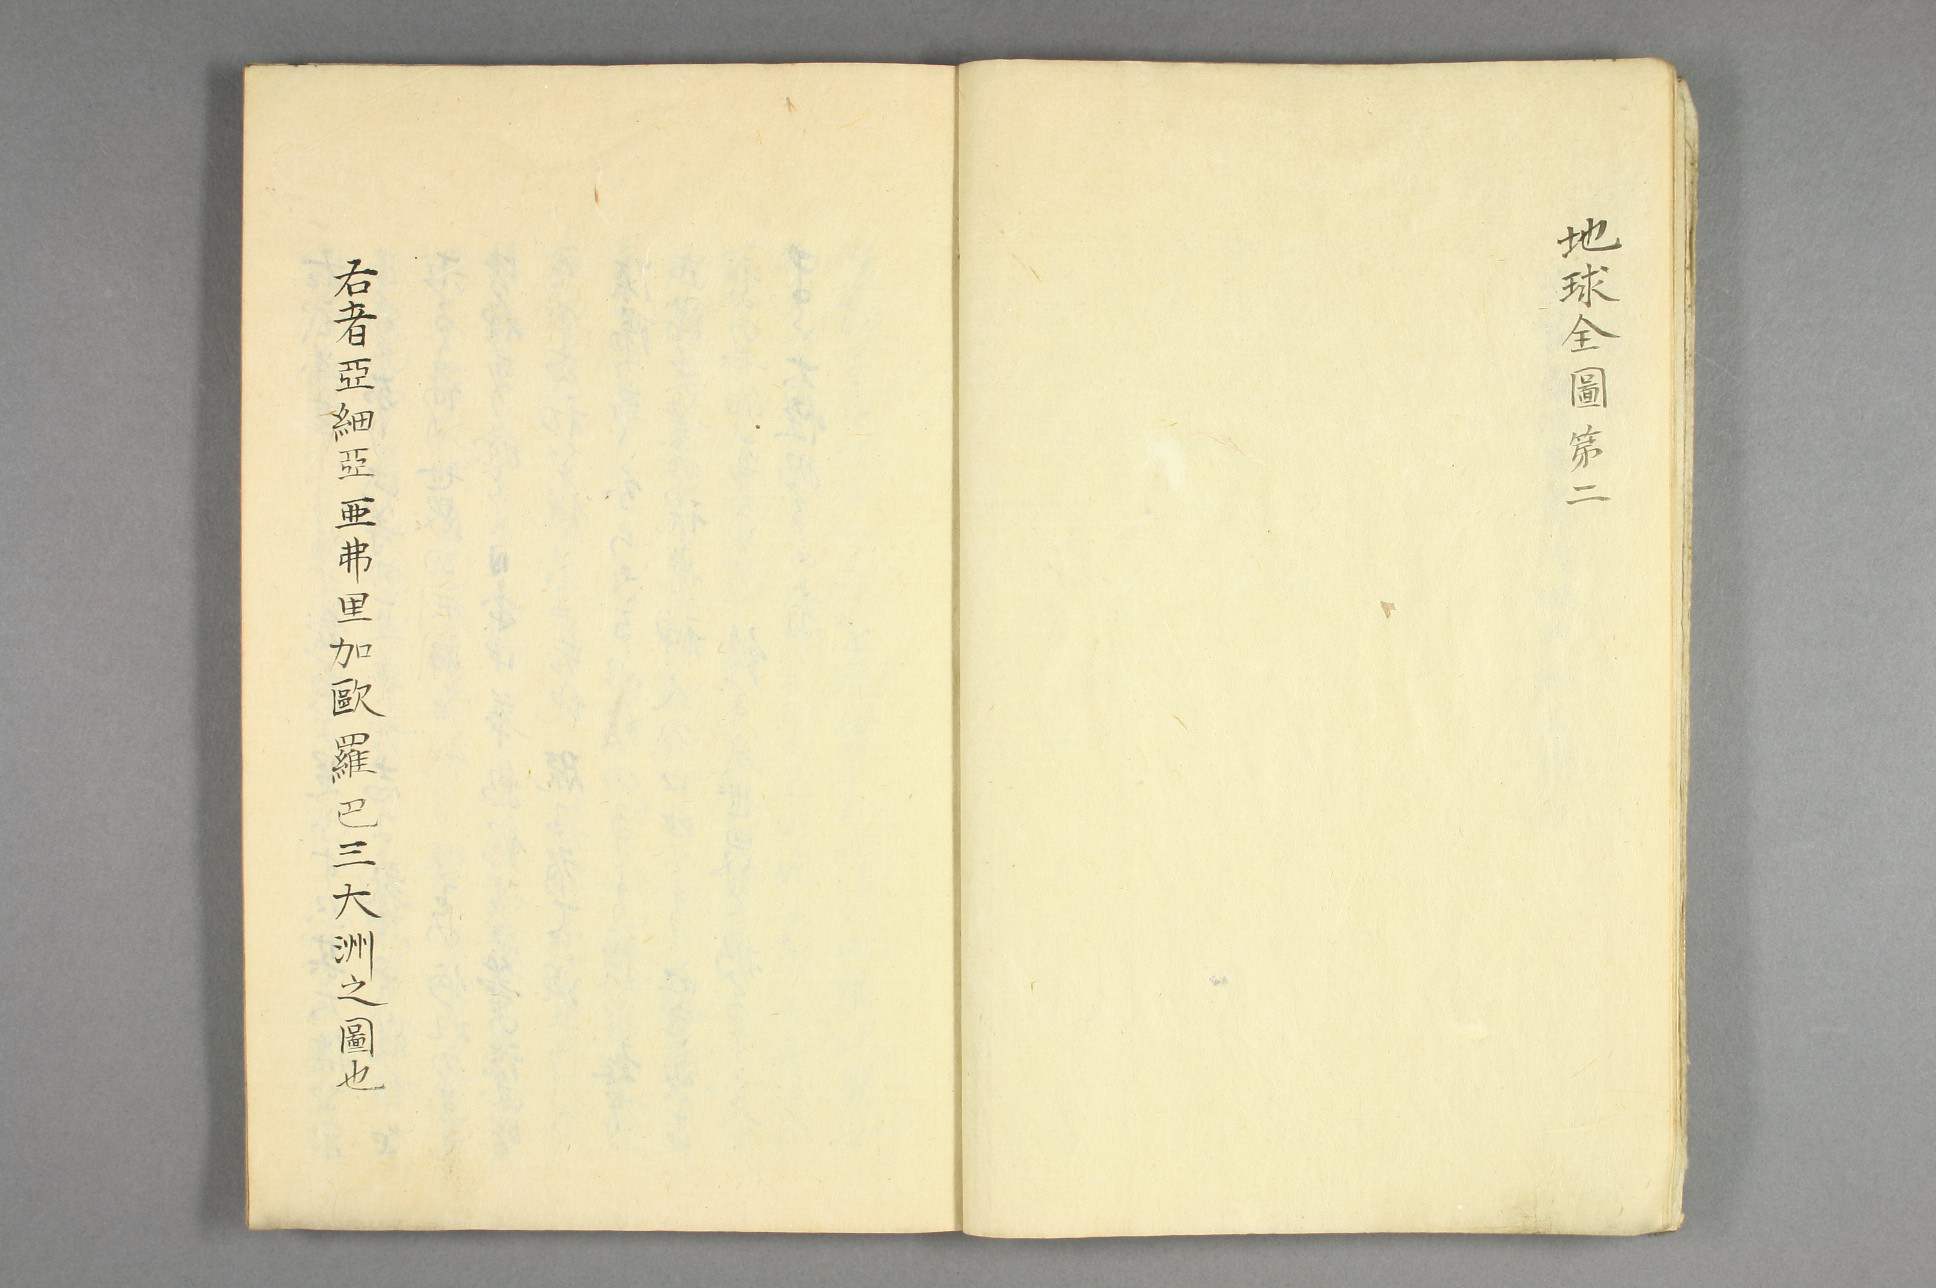 地球全圖第二
右者亞細亞亜弗里加歐羅巴三大洲之圖也